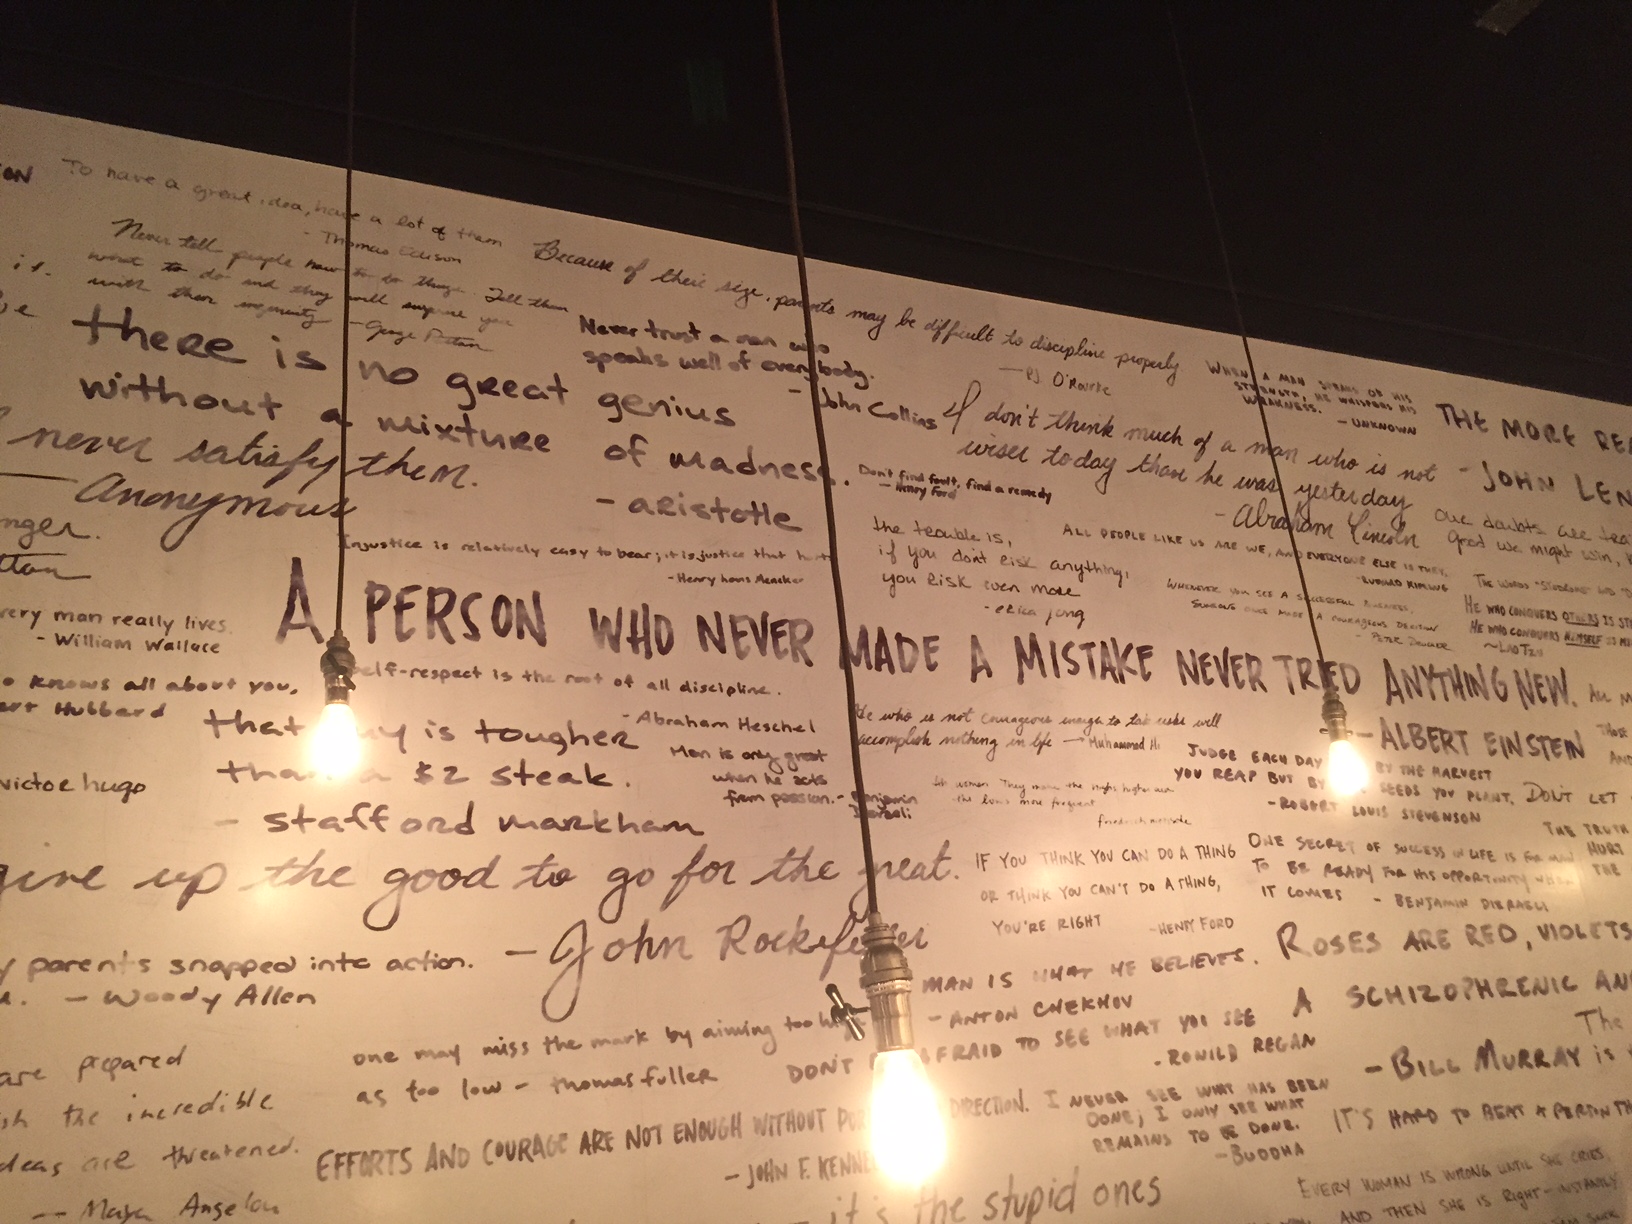 ON
To have a great idea, have a lot of them
- Thomas Edison
Never tell people how to do things. Tell them
what to do and they will surprise you
with their ingenuity - George Patton
it.
Because of their size, parents may be difficult to discipline properly
- PJ O'Rourke
there is no great genius
without a mixture of madness.
- aristotle
Never trust a man who
speaks well of everybody.
- John Collins
WHEN A MAN
STRENGTH, HE WHISPERS HIS
WEAKNESS.
- UNKNOWN
THE MORE REA
- JOHN LEN
I don't think much of a man who is not
wiser today than he was yesterday
- Abraham Lincoln
never satisfy them.
- Anonymous
Don't find fault, find a remedy
- Henry Ford
nger.
tton
Injustice is relatively easy to bear; it is justice that hurts
- Henry
the trouble is,
if you don't risk anything,
you risk even more
- erica jong
ALL PEOPLE LIKE US ARE WE, AND EVERYONE ELSE IS THEY.
- RUDYARD KIPLING
our doubts are trai
good we might win,
WHENEVER YOU SEE A SUCCESSFUL BUSINESS,
SOMEONE ONCE MADE A COURAGEOUS DECISION
- PETER
THE WORDS
HE WHO CONQUERS OTHERS IS ST
HE WHO CONQUERS HIMSELF IS MI
~ LAO TZU
A PERSON WHO NEVER MADE A MISTAKE NEVER TRIED ANYTHING NEW.
- ALBERT EINSTEIN
very man really lives.
- William Wallace
Self-respect is the root of all discipline.
- Abraham Heschel
o knows all about you,
ert Hubbard
that guy is tougher
than a $2 steak.
- stafford markham
He who is not courageous enough to take risks will
accomplish nothing in life - Muhammad Ali
Man is only great
when he acts
from passion. - Benjamin
Disraeli
JUDGE EACH DAY BY THE HARVEST
YOU REAP BUT BY SEEDS YOU PLANT.
- ROBERT LOUIS STEVENSON
DON'T LET
the lows more frequent
victor hugo
give up the good to go for the great.
- John Rockefeller
IF YOU THINK YOU CAN DO A THING
OR THINK YOU CAN'T DO A THING,
YOU'RE RIGHT
- HENRY FORD
ONE SECRET OF SUCCESS IN LIFE IS FOR MAN
TO BE READY FOR HIS OPPORTUNITY WHEN
IT COMES - BENJAMIN DISRAELI
THE TRUTH
HURT
THE
y parents snapped into action.
- Woody Allen
MAN IS WHAT HE BELIEVES.
- ANTON CHEKHOV
ROSES ARE RED, VIOLETS
A SCHIZOPHRENIC AN
- BILL MURRAY
The
is
one may miss the mark by aiming too high
as too low - thomas fuller
DON'T AFRAID TO SEE WHAT YOU SEE
- RONILD REGAN
are prepared
sh the incredible
deas are threatened.
-- Maya Angelou
EFFORTS AND COURAGE ARE NOT ENOUGH WITHOUT DIRECTION.
- JOHN F. KENNE
I NEVER SEE WHAT HAS BEEN
DONE; I ONLY SEE WHAT
REMAINS TO BE DONE.
- BUDDHA
IT'S HARD TO BEAT A PERSON TH
it's the stupid ones
EVERY WOMAN IS WRONG UNTIL SHE CRIES,
AND THEN SHE IS RIGHT - INSTANTLY